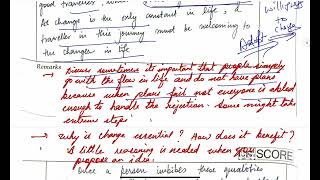 good traveller,
As change is the only constant in life, a
traveller in this journey must be welcoming to
the changes in life
willingness
to
change
Remarks
sometimes its important that people simply
go with the flow in life and do not have plans
because when plans fail not everyone is abled
enough to handle the rejection. Some might take
extreme steps
→ Why is change essential? How does it benefit?
A little reasoning is needed when you
propose an idea.
SCORE
Once a person imbibes these qualities